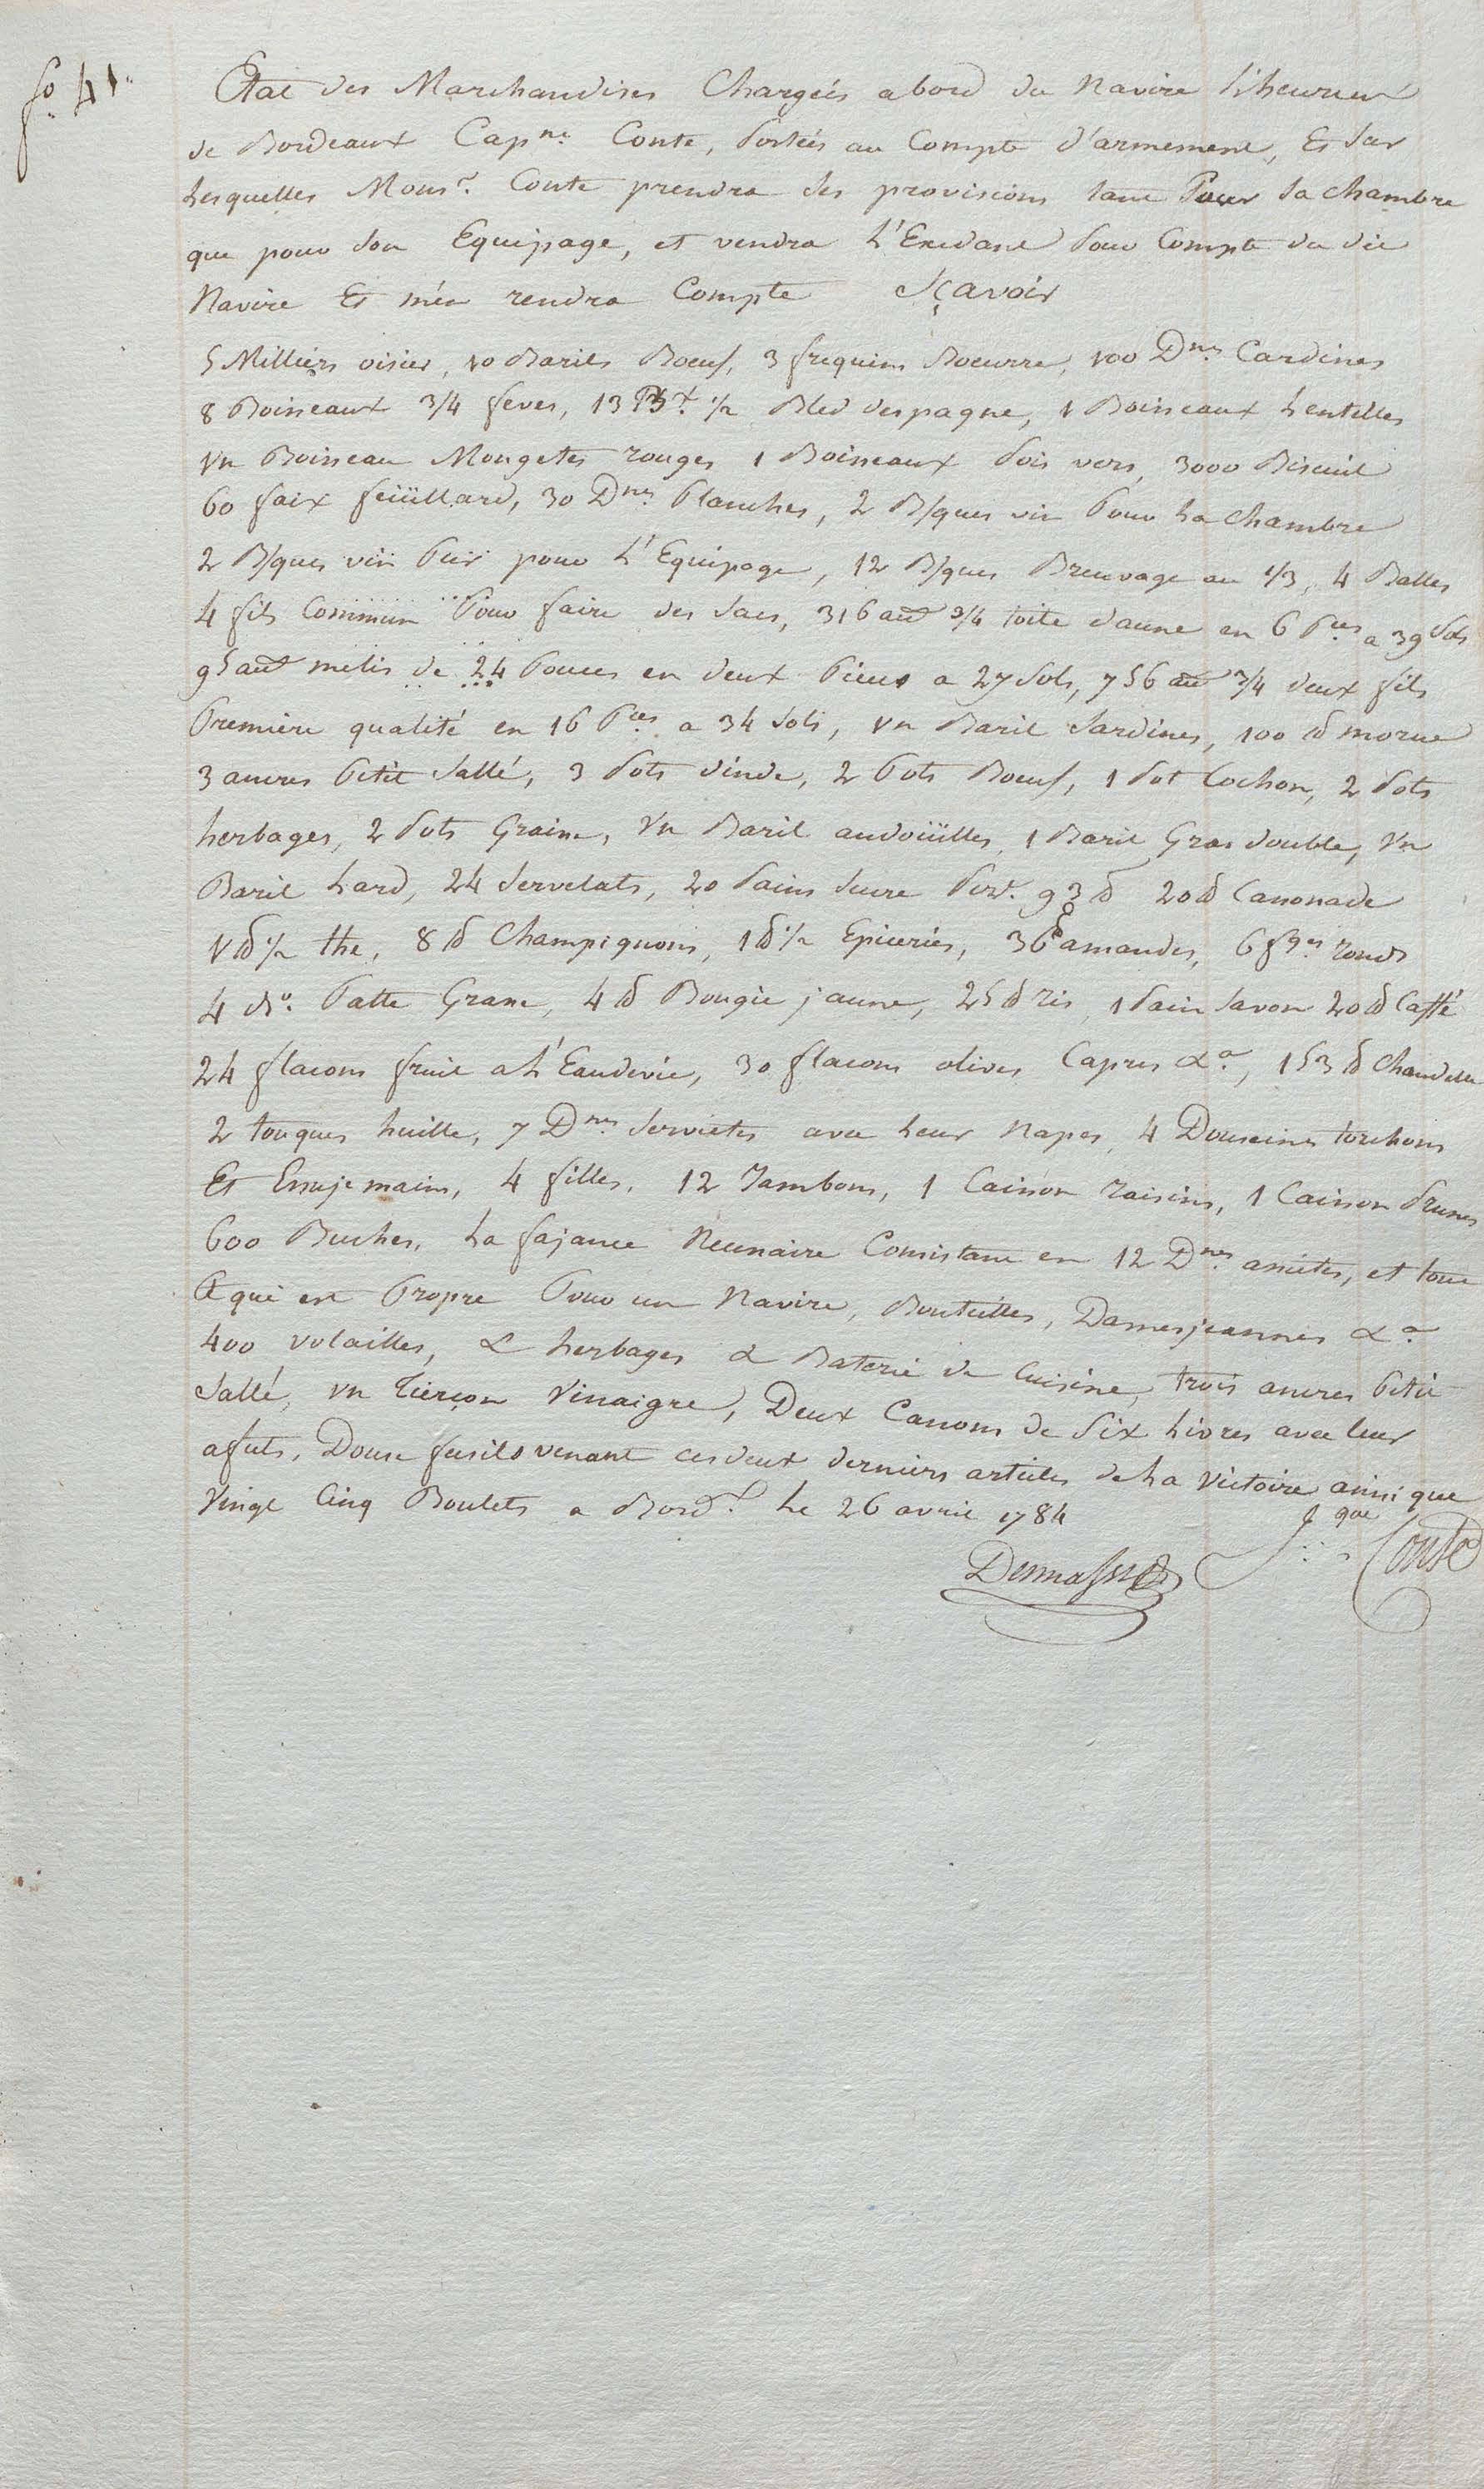 fo 41
Etat des Marchandises Chargées abord du Navire L'heureux
de Bordeaux Capne. Conte, Portées au Compte d'armement, Et Sur
Lesquelles Monsr. Conte prendra ses provisions tant Pour sa chambre
que pour son Equipage, et vendra L'Exedant Pour Compte du dit
Navire Et m'en rendra Compte Sçavoir
5 Milliers oisier, 10 Barils Boeuf, 3 frequins Boeurre, 100 Dnes Cardines
8 Boisseaux 3/4 feves, 13 Bx. 1/2 Bled despagne, 1 Boisseaux Lentilles
Vn Boisseau Mongetes rouges 1 Boisseaux Pois vers, 3000 Biscuit
60 faix feüillard, 30 Dnes Planches, 2 B/ques vin Pour La Chambre
2 B/ques vin Pur pour L'Equipage, 12 B/ques Breuvage au 1/3, 4 Balles
4 fils Commun Pour faire des Sacs, 316 aus 3/4 toile d'aune en 6 Pces a 39 Sols
95 aus melis de 24 Pouces en deux Pieces a 27 Sols, 756 aus 3/4 deux fils
Premiere qualité en 16 Pces a 34 Sols, Vn Baril Sardines, 100 lb morue
3 ancres Petit Sallé, 3 Pots dinde, 2 Pots Boeuf, 1 Pot Cochon, 2 Pots
herbages, 2 Pots Graine, Vn Baril andoüilles, 1 Baril Gras double, Vn
Baril Lard, 24 Servelats, 20 Pains Sucre Pt. 93 lb 20 lb Cassonade
1 lb 1/2 the, 8 lb Champignons, 1 lb 1/2 Epiceries, 36 lb amandes, 6 fges ronds
4 do. Patte Grane, 4 lb Bougie jaune, 25 lb ris, 1 Pain Savon 20 lb Caffé
24 flacons fruit a L'Eaudevie, 30 flacons olives Capres &a, 153 lb Chandelle
2 touques huille, 7 Dnes Serviettes avec Leur Napes, 4 Douseines torchons
Et Essuje mains, 4 filles, 12 Jambons, 1 Caisson raisins, 1 Caisson Prunes
600 Buches, La fajance Necessaire Consistant en 12 Dnes assietes, et tout
Ce qui est Propre Pour un Navire, Bouteilles, Damesjeannes &a
400 volailles, & herbages & Baterie de Cuisine, trois ancres Petit
Sallé, vn Tierçon Vinaigre, Deux Canons de Six Livres avec leur
afuts, Douse fusils venant ces deux derniers articles de La Victoire ainsi que
Vingt Cinq Boulets a Bordx. Le 26 avril 1784
Conte